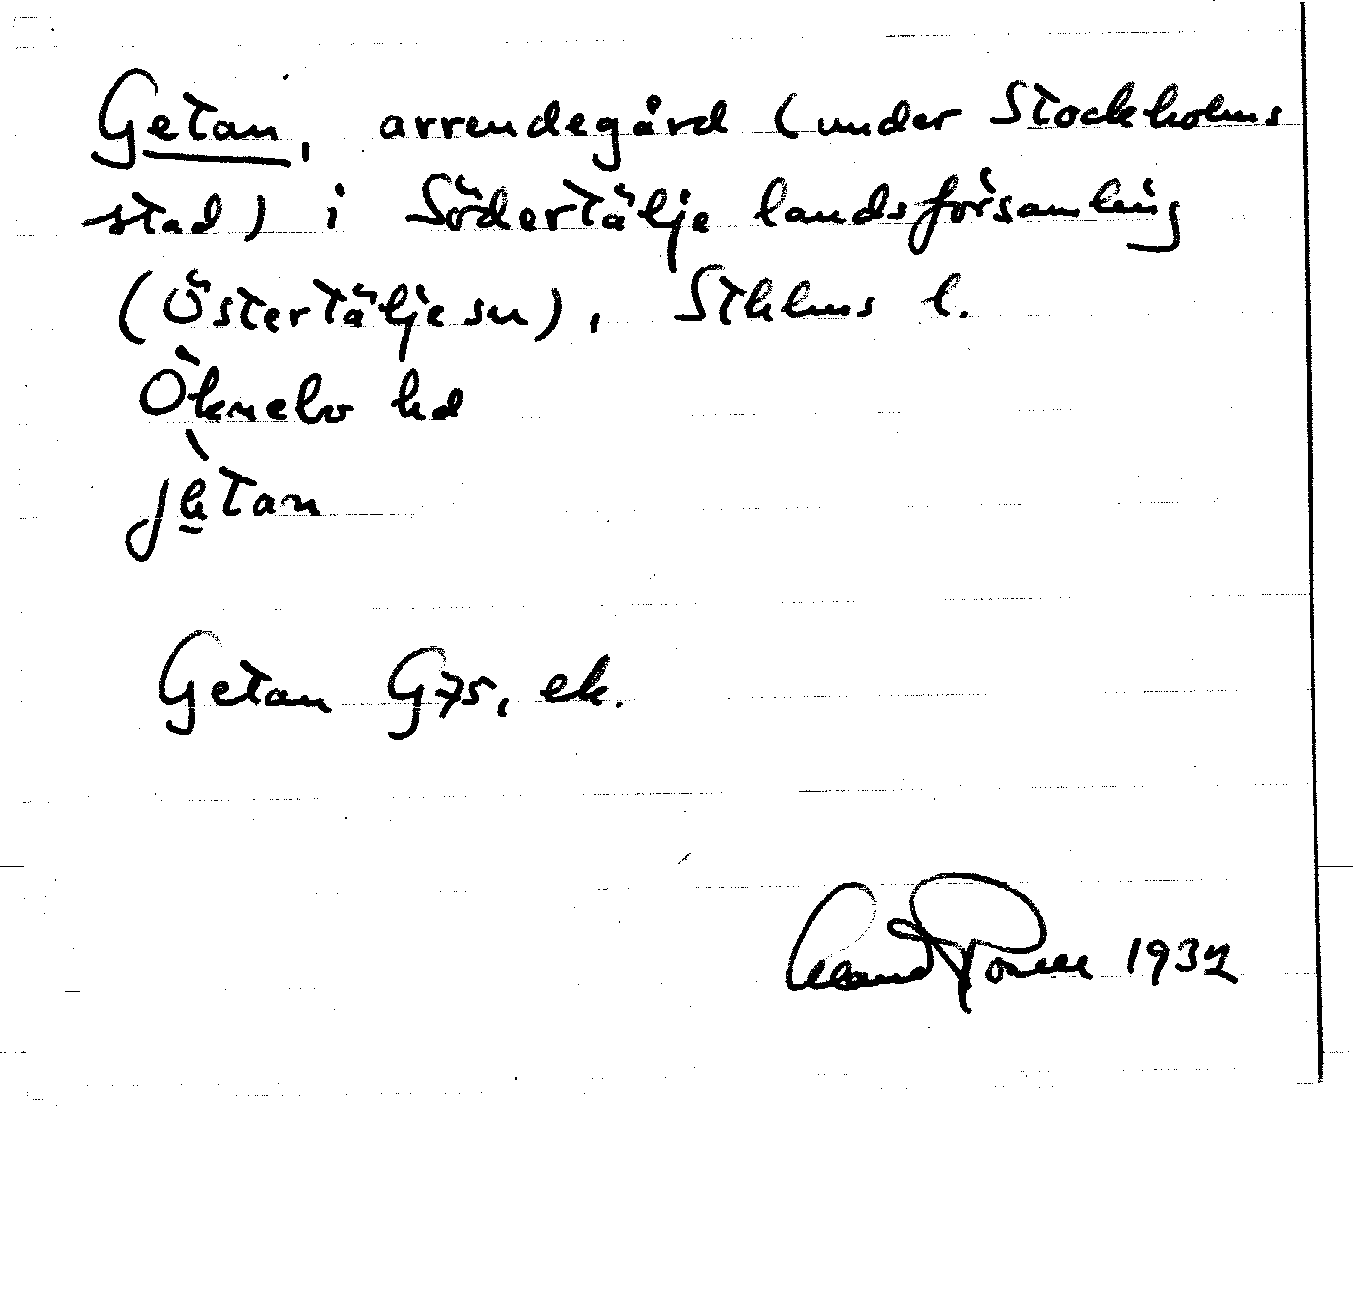 Getan, arrendegård (under Stockholms
stad) i Södertälje landsförsamling
(Östertälje sn), Sthlms l.
Öknebo hd
jètan
Getan G75, ek.
1937